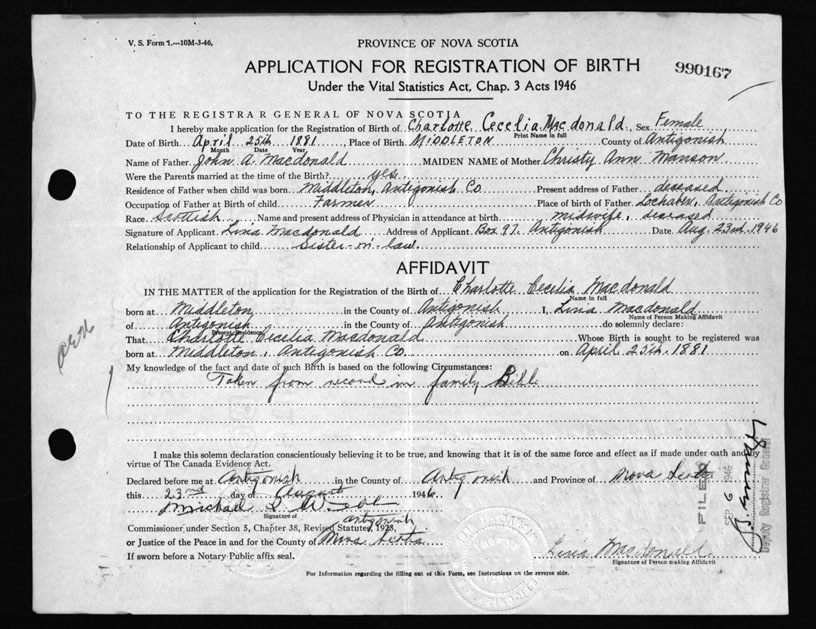 V. S. Form 1.—10M-3-46.
PROVINCE OF NOVA SCOTIA
APPLICATION FOR REGISTRATION OF BIRTH
990167
Under the Vital Statistics Act, Chap. 3 Acts 1946
TO THE REGISTRAR GENERAL OF NOVA SCOTIA
I hereby make application for the Registration of Birth of Charlotte Cecelia Macdonald, Sex Female
Print Name in full
Date of Birth April 25th 1881, Place of Birth MIDDLETON County of Antigonish
Month Date Year
Name of Father John A. Macdonald MAIDEN NAME of Mother Christy Ann Manson
Were the Parents married at the time of the Birth? yes
Residence of Father when child was born Middleton, Antigonish Co Present address of Father deseased
Occupation of Father at Birth of child Farmer Place of birth of Father Lochaber, Antigonish Co
Race Scottish Name and present address of Physician in attendance at birth midwife, deseased
Signature of Applicant Lina Macdonald Address of Applicant Box 97. Antigonish Date Aug. 23rd 1946
Relationship of Applicant to child Sister-in-law
AFFIDAVIT
IN THE MATTER of the application for the Registration of the Birth of Charlotte Cecilia Macdonald
Name in full
born at Middleton in the County of Antigonish I, Lina Macdonald
Name of Person Making Affidavit
of Antigonish in the County of Antigonish do solemnly declare:
Present Residence
That Charlotte Cecilia Macdonald Whose Birth is sought to be registered was
born at Middleton, Antigonish Co. on April 25th. 1881
My knowledge of the fact and date of such Birth is based on the following Circumstances:
Taken from record in family Bible
I make this solemn declaration conscientiously believing it to be true, and knowing that it is of the same force and effect as if made under oath and by
virtue of The Canada Evidence Act.
Declared before me at Antigonish in the County of Antigonish and Province of Nova Scotia
this 23rd day of August 1946
Michael
Signature of
Commissioner, under Section 5, Chapter 38, Revised Statutes, 1923, Antigonish
or Justice of the Peace in and for the County of Nova Scotia
If sworn before a Notary Public affix seal.
Lina Macdonald
Signature of Person making Affidavit
For Information regarding the filling out of this Form, see Instructions on the reverse side.
FILED
SEP 6 1946
Deputy Registrar General